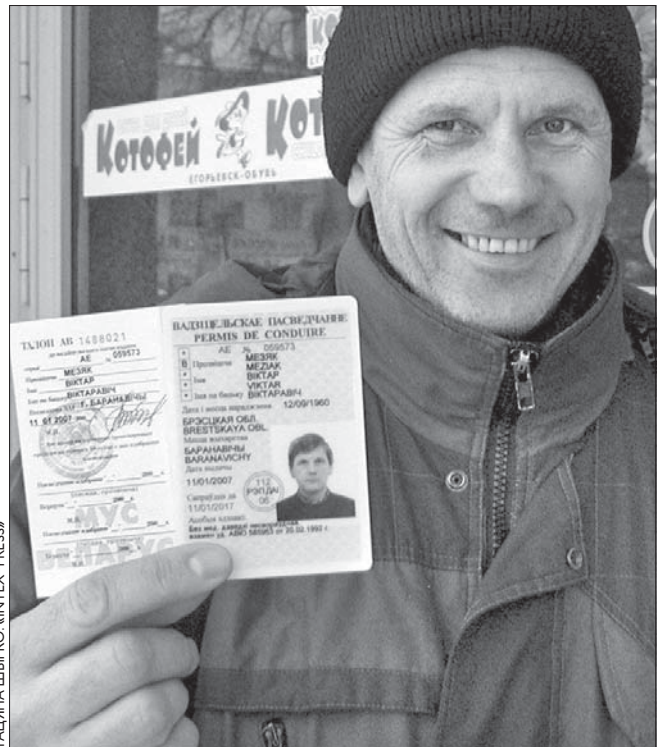 КОТОФЕЙ
КОТ
ЕГОРЬЕВСК-ОБУВЬ
ТАЛОН АВ 1488021
АЕ № 059573
МЕЗЯК
ВІКТАР
ВІКТАРАВІЧ
Г. БАРАНАВІЧЫ
11 01 2007
МУС
БЕЛАРУС
ВАДЗІЦЕЛЬСКАЕ ПАСВЕДЧАННЕ
PERMIS DE CONDUIRE
АЕ № 059573
В Прозвішча МЕЗЯК
MEZIAK
Імя ВІКТАР
VIKTAR
Імя па бацьку ВІКТАРАВІЧ
Дата і месца нараджэння 12/09/1960
БРЭСЦКАЯ ОБЛ.
BRESTSKAYA OBL.
Месца жыхарства
БАРАНАВІЧЫ
BARANAVICHY
Дата выдачы
11/01/2007
Сапраўдна да
11/01/2017
Асобыя адзнакі
112
РЭП ДАІ
06